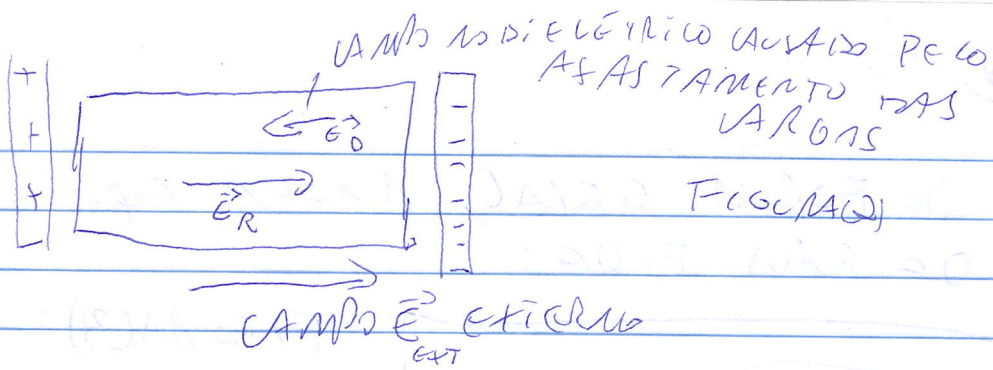 CAMPO NO DIELÉTRICO CAUSADO PELO
AFASTAMENTO DAS
CARGAS
+
+
+
E⃗D
E⃗R
FIGURA(2)
CAMPO E⃗EXT EXTERNO